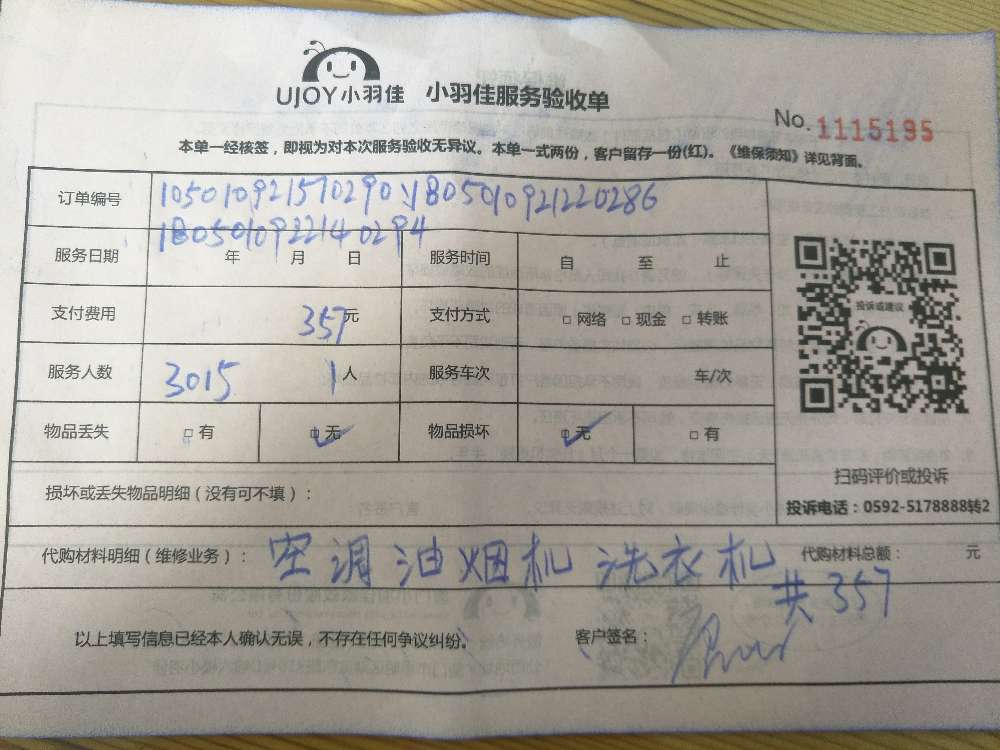 UJOY小羽佳 小羽佳服务验收单
No. 1115195
本单一经核签，即视为对本次服务验收无异议。本单一式两份，客户留存一份(红)。《维保须知》详见背面。
订单编号 105010921570290 1805010921220286
1805010922140294
服务日期 年 月 日 服务时间 自 至 止
支付费用 357元 支付方式 □ 网络 □ 现金 □ 转账
服务人数 3015 1人 服务车次 车/次
物品丢失 □ 有 □ 无 ✓ 物品损坏 □ 无 ✓ □ 有
投诉或建议
扫码评价或投诉
投诉电话：0592-5178888转2
损坏或丢失物品明细（没有可不填）：
代购材料明细（维修业务）： 空调 油烟机 洗衣机 代购材料总额： 元
共357
以上填写信息已经本人确认无误，不存在任何争议纠纷。 客户签名：